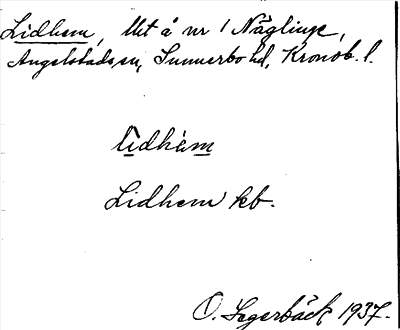 Lidhem, Utt å nr 1 Näglinge,
Angelstads sn, Sunnerbo hd, Kronob. l.
lidhèm
Lidhem kb.
O. Segerbäck 1937.